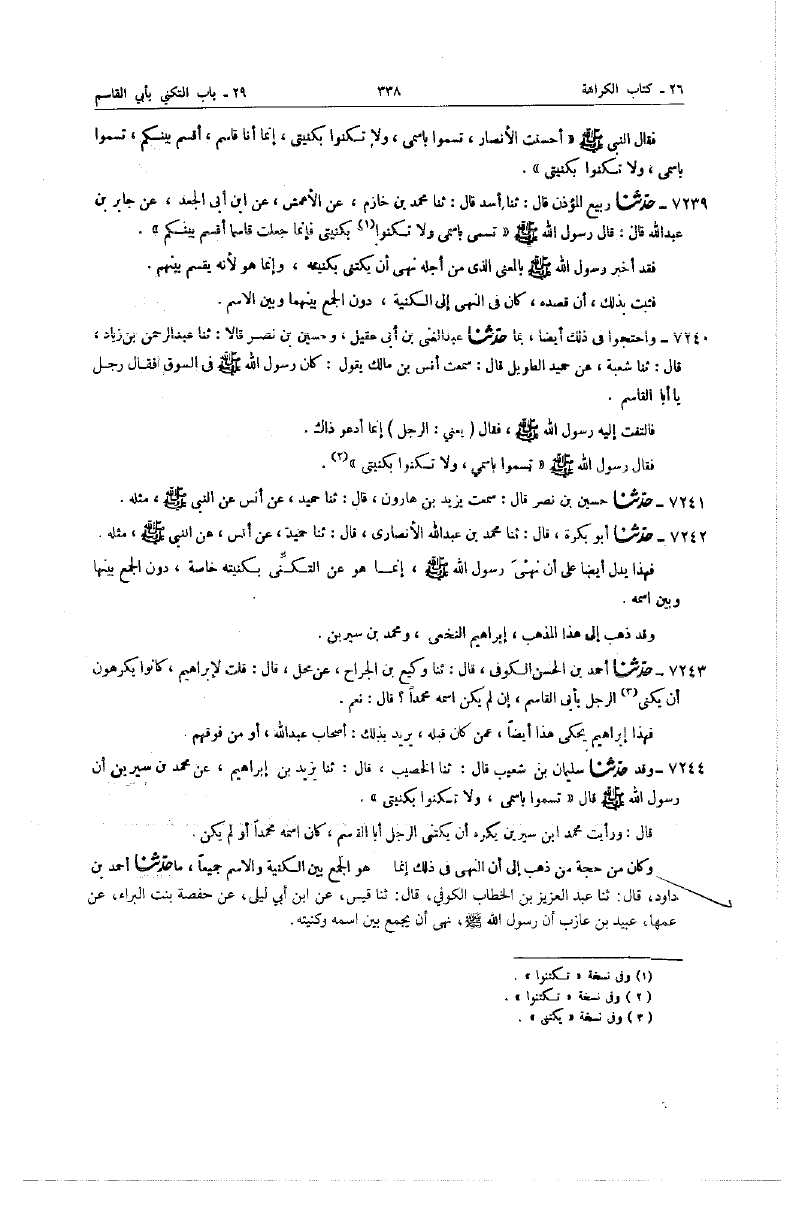 ٢٦ - كتاب الكراهة ٣٣٨ ٢٩ - باب التكني بأبي القاسم
فقال النبي ﷺ « أحسنت الأنصار ، تسموا باسمى ، ولا تكنوا بكنيتى ، إنما أنا قاسم ، أقسم بينكم ، تسموا
باسمى ، ولا تكنوا بكنيتى » .
٧٢٣٩ - حدثنا ربيع المؤذن قال : ثنا أسد قال : ثنا محمد بن خازم ، عن الأعمش ، عن ابن أبى الجعد ، عن جابر بن
عبدالله قال : قال رسول الله ﷺ « تسمى باسمى ولا تكنوا(١) بكنيتى فإنما جعلت قاسما أقسم بينكم » .
فقد أخبر رسول الله ﷺ بالمعنى الذى من أجله نهى أن يكتنى بكنيته ، وإنما هو لأنه يقسم بينهم .
فثبت بذلك ، أن قصده ، كان فى النهى إلى الكنية ، دون الجمع بينهما وبين الاسم .
٧٢٤٠ - واحتجوا فى ذلك أيضا ، بما حدثنا عبدالغنى بن أبى عقيل ، وحسين بن نصر قالا : ثنا عبدالرحمن بن زياد ،
قال : ثنا شعبة ، عن حميد الطويل قال : سمعت أنس بن مالك يقول : كان رسول الله ﷺ فى السوق فقال رجل
يا أبا القاسم .
فالتفت إليه رسول الله ﷺ ، فقال ( يعني : الرجل ) إنما أدعو ذاك .
فقال رسول الله ﷺ « تسموا باسمي ، ولا تكنوا بكنيتى »(٢) .
٧٢٤١ - حدثنا حسين بن نصر قال : سمعت يزيد بن هارون ، قال : ثنا حميد ، عن أنس عن النبي ﷺ ، مثله .
٧٢٤٢ - حدثنا أبو بكرة ، قال : ثنا محمد بن عبدالله الأنصارى ، قال : ثنا حميد ، عن أنس ، عن النبي ﷺ ، مثله .
فهذا يدل أيضا على أن نهىَ رسول الله ﷺ ، إنما هو عن التكنِّى بكنيته خاصة ، دون الجمع بينها
وبين اسمه .
وقد ذهب إلى هذا المذهب ، إبراهيم النخعى ، ومحمد بن سيرين .
٧٢٤٣ - حدثنا أحمد بن الحسن الكوفى ، قال : ثنا وكيع بن الجراح ، عن محل ، قال : قلت لإبراهيم ، كانوا يكرهون
أن يكنى(٣) الرجل بأبى القاسم ، إن لم يكن اسمه محمداً ؟ قال : نعم .
فهذا إبراهيم يحكى هذا أيضاً ، عمن كان قبله ، يريد بذلك : أصحاب عبدالله ، أو من فوقهم .
٧٢٤٤ - وقد حدثنا سليمان بن شعيب قال : ثنا الخصيب ، قال : ثنا يزيد بن إبراهيم ، عن محمد بن سيرين أن
رسول الله ﷺ قال « تسموا باسمى ، ولا تكنوا بكنيتى » .
قال : ورأيت محمد ابن سيرين يكره أن يكتنى الرجل أبا القاسم ، كان اسمه محمداً أو لم يكن .
وكان من حجة من ذهب إلى أن النهى فى ذلك إنما هو الجمع بين الكنية والاسم جميعاً ، ما حدثنا أحمد بن
داود، قال: ثنا عبد العزيز بن الخطاب الكوفي، قال: ثنا قيس، عن ابن أبي ليلى، عن حفصة بنت البراء، عن
عمها، عبيد بن عازب أن رسول الله ﷺ، نهى أن يجمع بين اسمه وكنيته.
(١) وفى نسخة « تكتنوا » .
(٢) وفى نسخة « تكتنوا » .
(٣) وفى نسخة « يكتنى » .